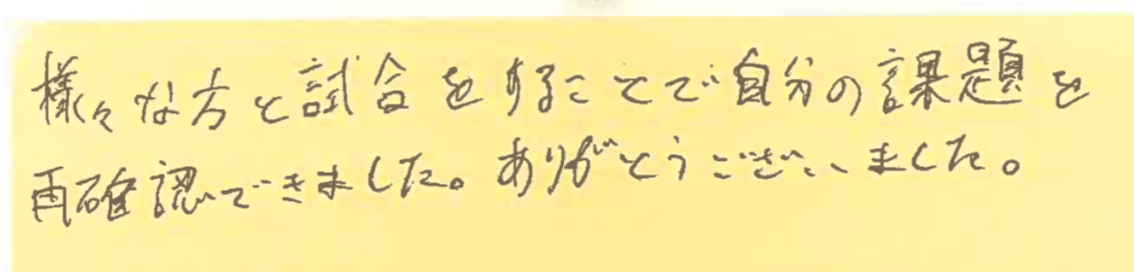 様々な方と試合をすることで自分の課題を
再確認できました。ありがとうございました。